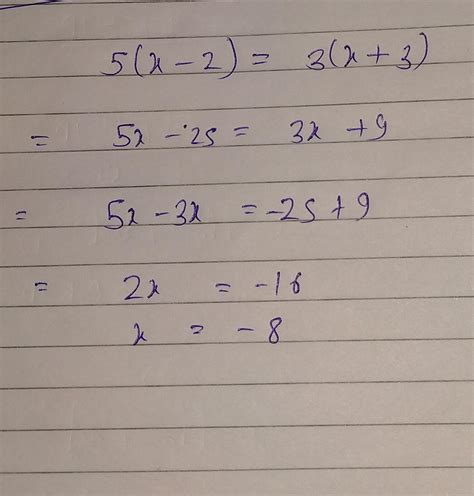 5(x - 2) = 3(x + 3)
= 5x - 25 = 3x + 9
= 5x - 3x = -25 + 9
= 2x = -16
x = -8